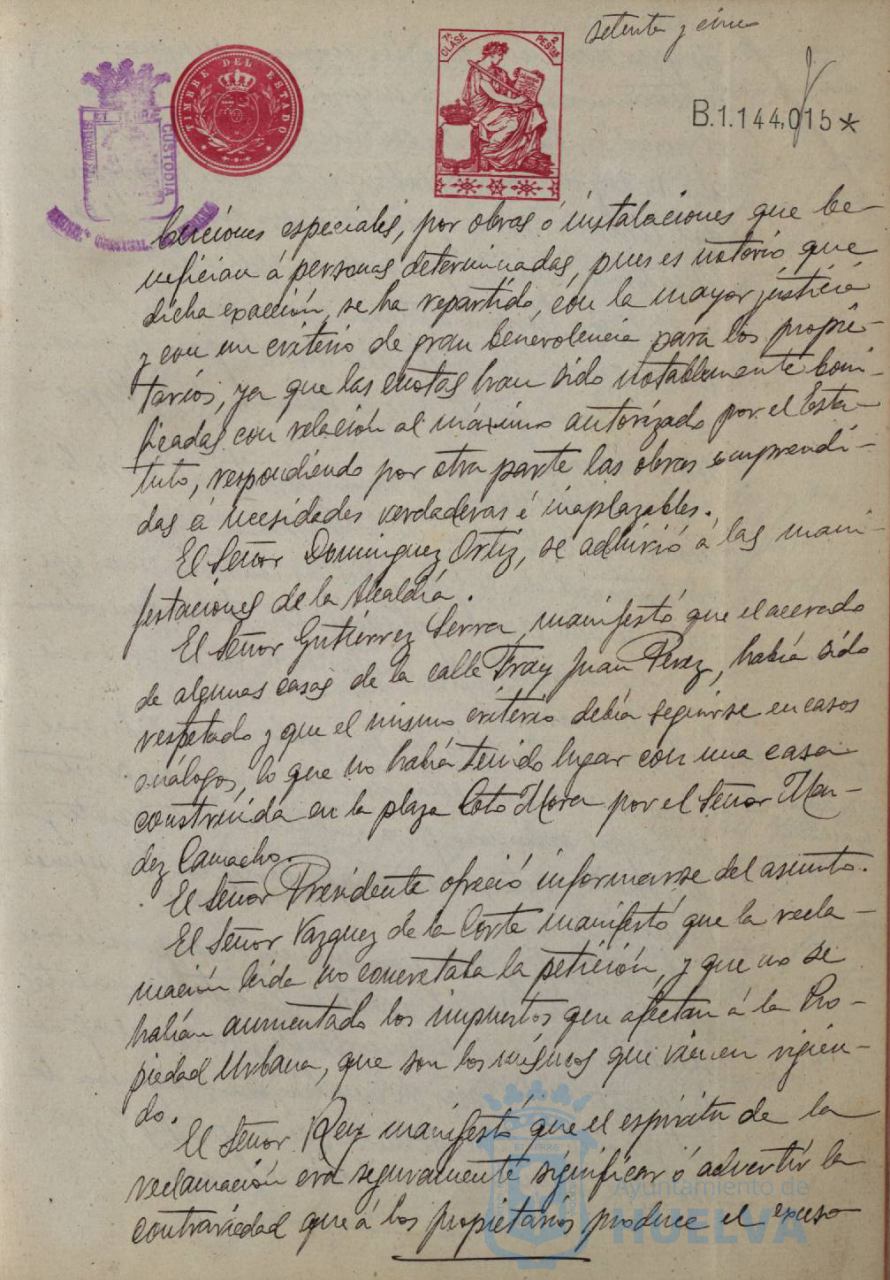 setenta y cinco
7ª CLASE
2 PESTAS
TIMBRE DEL ESTADO
CUSTODIA
B.1.144,015*
buciones especiales, por obras ó instalaciones que be-
nefician á personas determinadas, pues es notorio que
dicha exacción, se ha repartido, con la mayor justicia
y con un criterio de gran benevolencia para los propie-
tarios, ya que las cuotas han sido notablemente boni-
ficadas con relación al máximo autorizado por el Esta-
tuto, respondiendo por otra parte las obras emprendi-
das á necesidades verdaderas é inaplazables.
El Señor Dominguez Ortiz, se adhirió á las mani-
festaciones de la Alcaldía.
El Señor Gutiérrez Serra, manifestó que el acerado
de algunas casas de la calle Fray Juan Perez, había sido
respetado y que el mismo criterio debía seguirse en casos
análogos, lo que no había tenido lugar con una casa
construida en la plaza Coto Mora por el Señor Men-
dez Camacho.
El Señor Presidente ofreció informarse del asunto.
El Señor Vazquez de la Corte manifestó que la recla-
mación leida no concretaba la petición, y que no se
habían aumentado los impuestos que afectan á la Pro-
piedad Urbana, que son los mismos que vienen rigien-
do.
El Señor Ruiz manifestó que el espíritu de la
reclamación era seguramente significar ó advertir la
contrariedad que á los propietarios produce el exceso
Ayuntamiento de
HUELVA